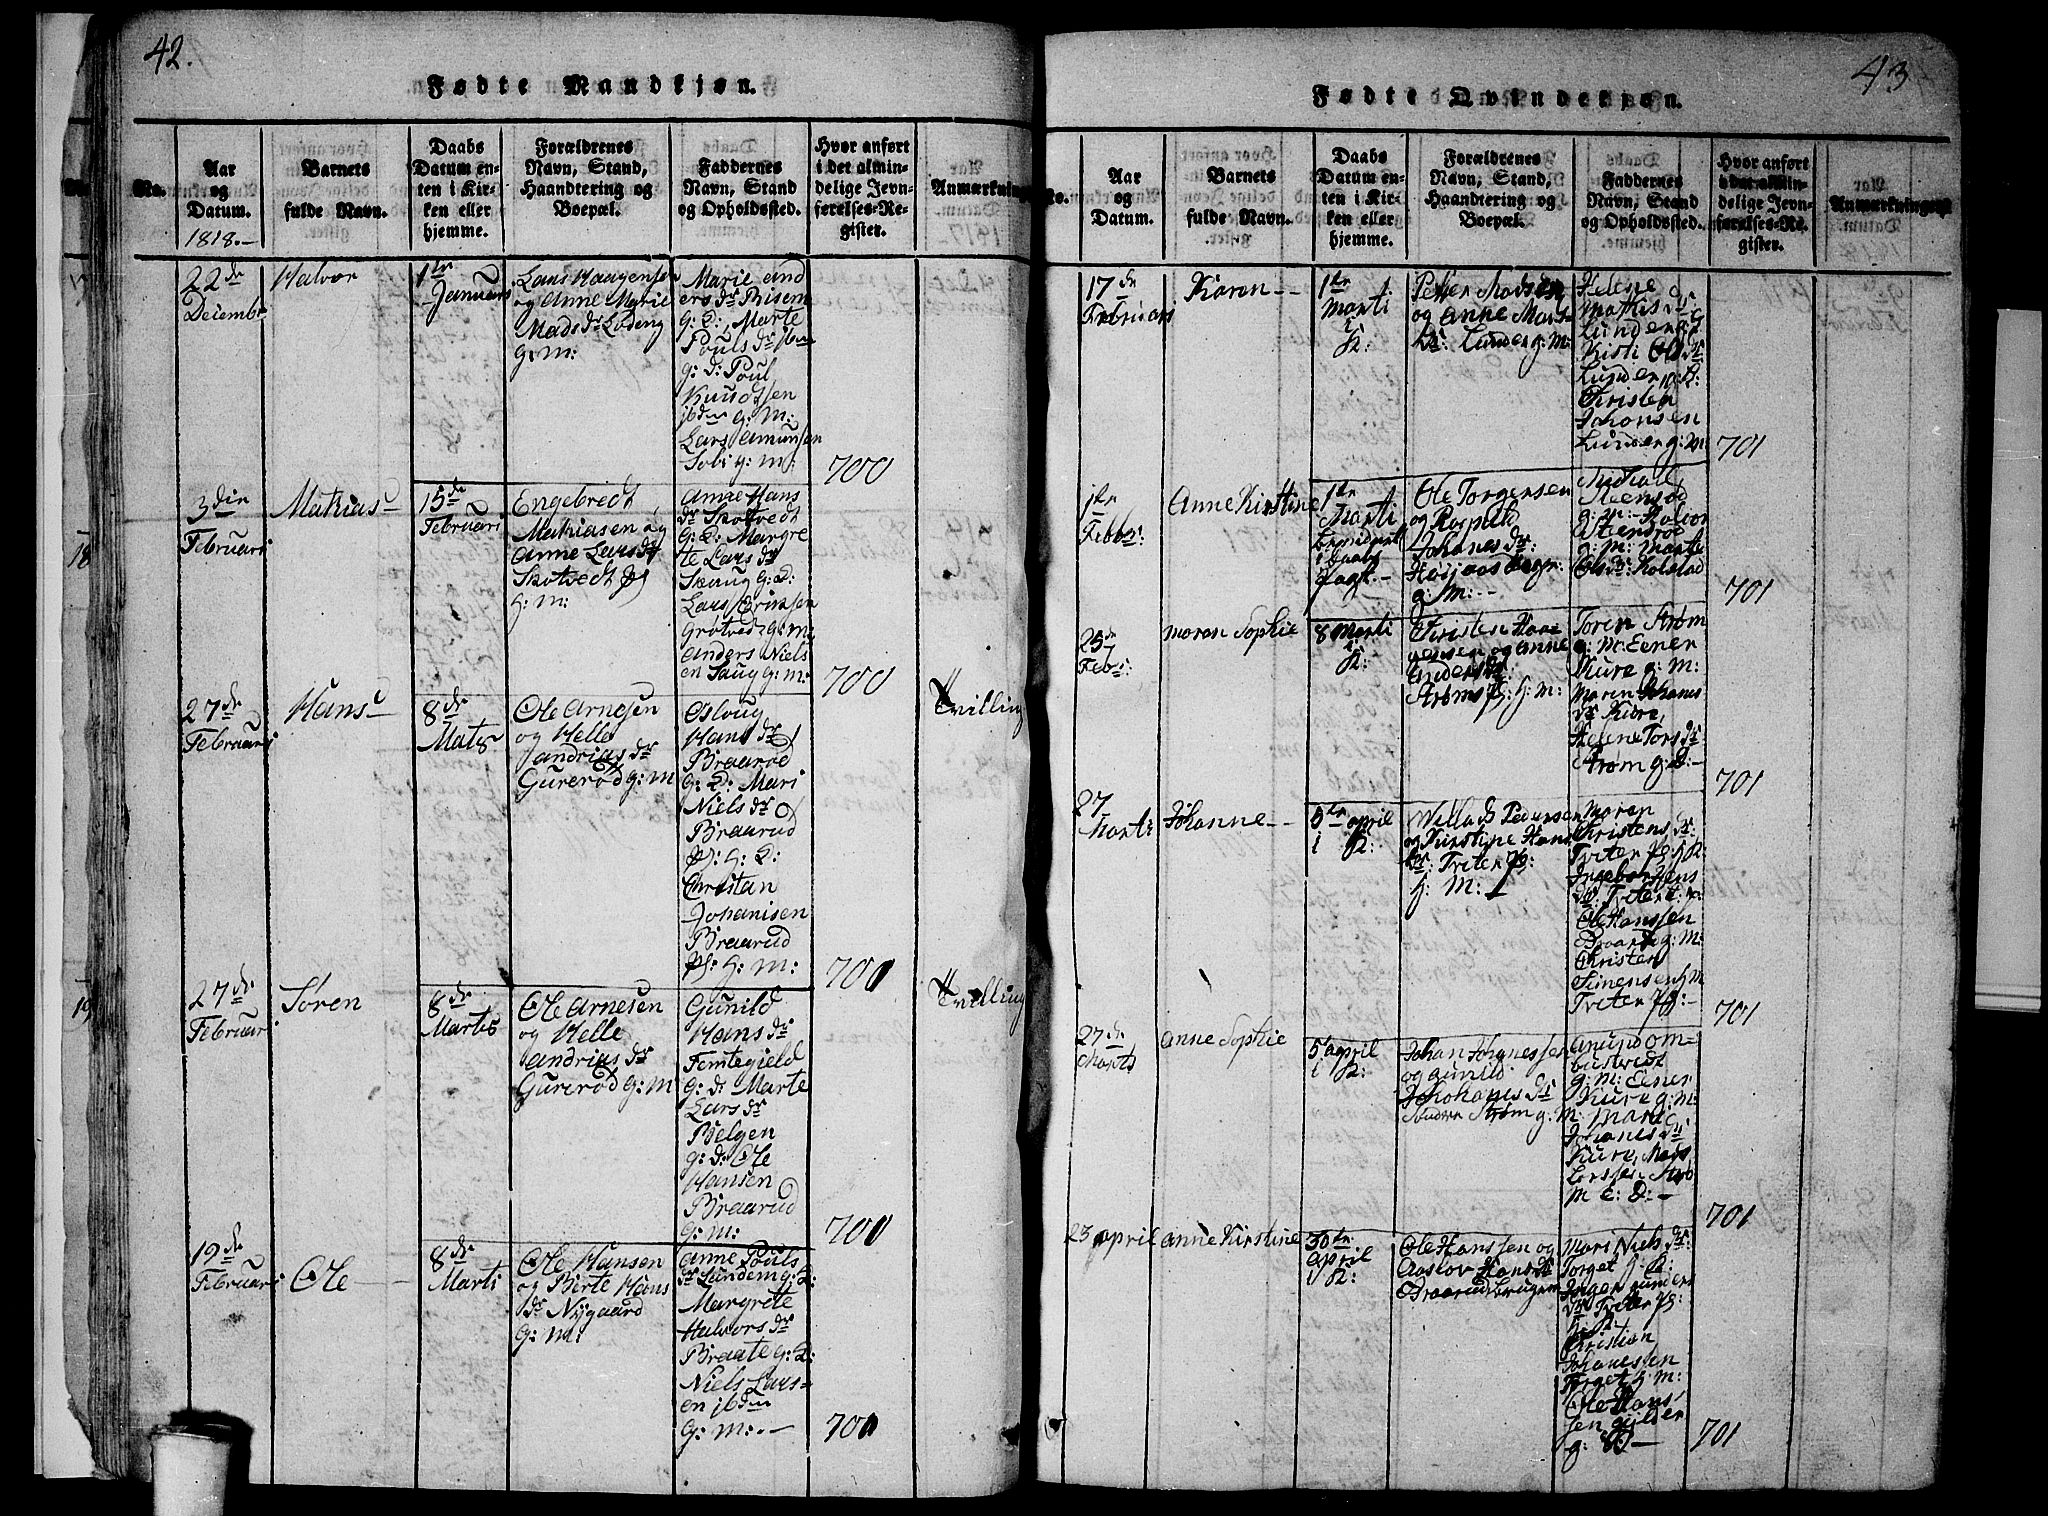 42.
Fødte Mandkjøn.
No.
Aar
og
Datum.
1818.-
Barnets
fulde Navn.
Daabs
Datum en-
ten i Kir-
ken eller
hjemme.
Forældrenes
Navn, Stand,
Haandtering og
Boepæl.
Faddernes
Navn, Stand
og Opholdssted.
Hvor anført
i det almin-
delige Jevn-
førelses-Re-
gister.
Anmærkning
22de
Decembr
Halvor
1te
Januari
Lars Haagensen
og Anne Marie
Mads dr Lødeng
g: m:
Marie And
ers dr Bisem
g: D: Marte
Pouls dr ibm
g: d: Poul
Knudtsen
ibden g: m:
Lars Amunsen
Sobi g: m:
700
3die
Februari
Mathias
15de
Februari
Engebredt
Mathiasen og
Anne Lars dr
Skotvedt
H: m:
Anne Hans
dr Skotvedt
g: D: Margre
te Lars dr
Saug g: D:
Lars Ericksen
Grøtvedt g: m:
Anders Niels
en Saug g: m:
700
27de
Februari
Hans
8de
Martis
Ole Arnesen
og Helle
Andrias dr
Gurerød g: m
Oslaug
Hans dr
Braarud
g: D: Mari
Niels dr
Braarud
Pl: H: D:
Christan
Johanisen
Braarud
Pl: H: m:
700
Tvilling
27de
Februari
Søren
8de
Martis
Ole Arnesen
og Helle
Andrias dr
Gurerød g: m
Gunild
Hans dr
Femtegield
g: d: Marte
Lars dr
Belgen
g: d: Ole
Hansen
Braarud
g: m:
700
Tvilling
19de
Februari
Ole
8de
Marti
Ole Hansen
og Berte Hans
dr Nygaard
g: m:
Anne Pouls
dr Lundem g: D:
Margrete
Halvors dr
Braate g: D:
Niels Lars=
en ibden
g: m: -
700
43
Fødte Qvindekjøn.
No.
Aar
og
Datum.
Barnets
fulde Navn.
Daabs
Datum en-
ten i Kir-
ken eller
hjemme.
Forældrenes
Navn, Stand,
Haandtering og
Boepæl.
Faddernes
Navn, Stand
og Opholdssted.
Hvor anført
i det almin-
delige Jevn-
førelses-Re-
gister.
Anmærkninger
17de
Februari
Karen -
1te
Marti
i
K:
Petter Madsen
og Anne Mats
dr: Lunder g: m:
Helene
Mathis dr
Lunder
Kisti Ols dr
Lunder
Kristen
Johonsen
Lunder g: m
701
1te
Febbr:
Anne Kirstine
1te
Marti
i Daabs
pagt. -
Ole Torgensen
og
Johanes dr:
g: M: -
Steensrød
g: m: Halvor
Steensrød
g: m: Marte
Ols dr: Kolstad
701
25de
Febr:
Maren Sophie
8 Marti
i
K:
Kristen Haa=
gensen og Anne
Anders dr
Strøm H: m:
Toren Strøm
g: m: Eener
Kure g: m:
Maren Johanes
dr Kure,
Helene Tors dr
Strøm g: d: -
701
27
Marti
Johanne -
5te April
i K:
Willads Pedersen
og Kirstine Hans
dr: Tveter
H: M:
Maren
Kristens dr:
Tveter
Ingebor Jens
dr Tveter
Ole Hanssen
Braarud g: M:
Christen
Simensen H M
Tveter
701
27de
Marti
Anne Sophie
5 April
i K:
Johan Johanessen
og Gunild
Johanes dr
Søndre Strøm g: m
Amund Om=
bustvedt
g: m: Eener
Kure g: m:
Marie
Johanes dr
Kure, Mads
Larssen Strø
m E: D: -
701
23 April
Anne Kirstine
30te
April
i K:
Ole Hanssen og
Aaslov Hans dr
Braarud Bruger
Mari Niels dr:
Torget H: D:
Inger Gunders
dr Tveter
Kristian
Johanessen
Torget H: M:
Ole Hans
sen
g: -
701